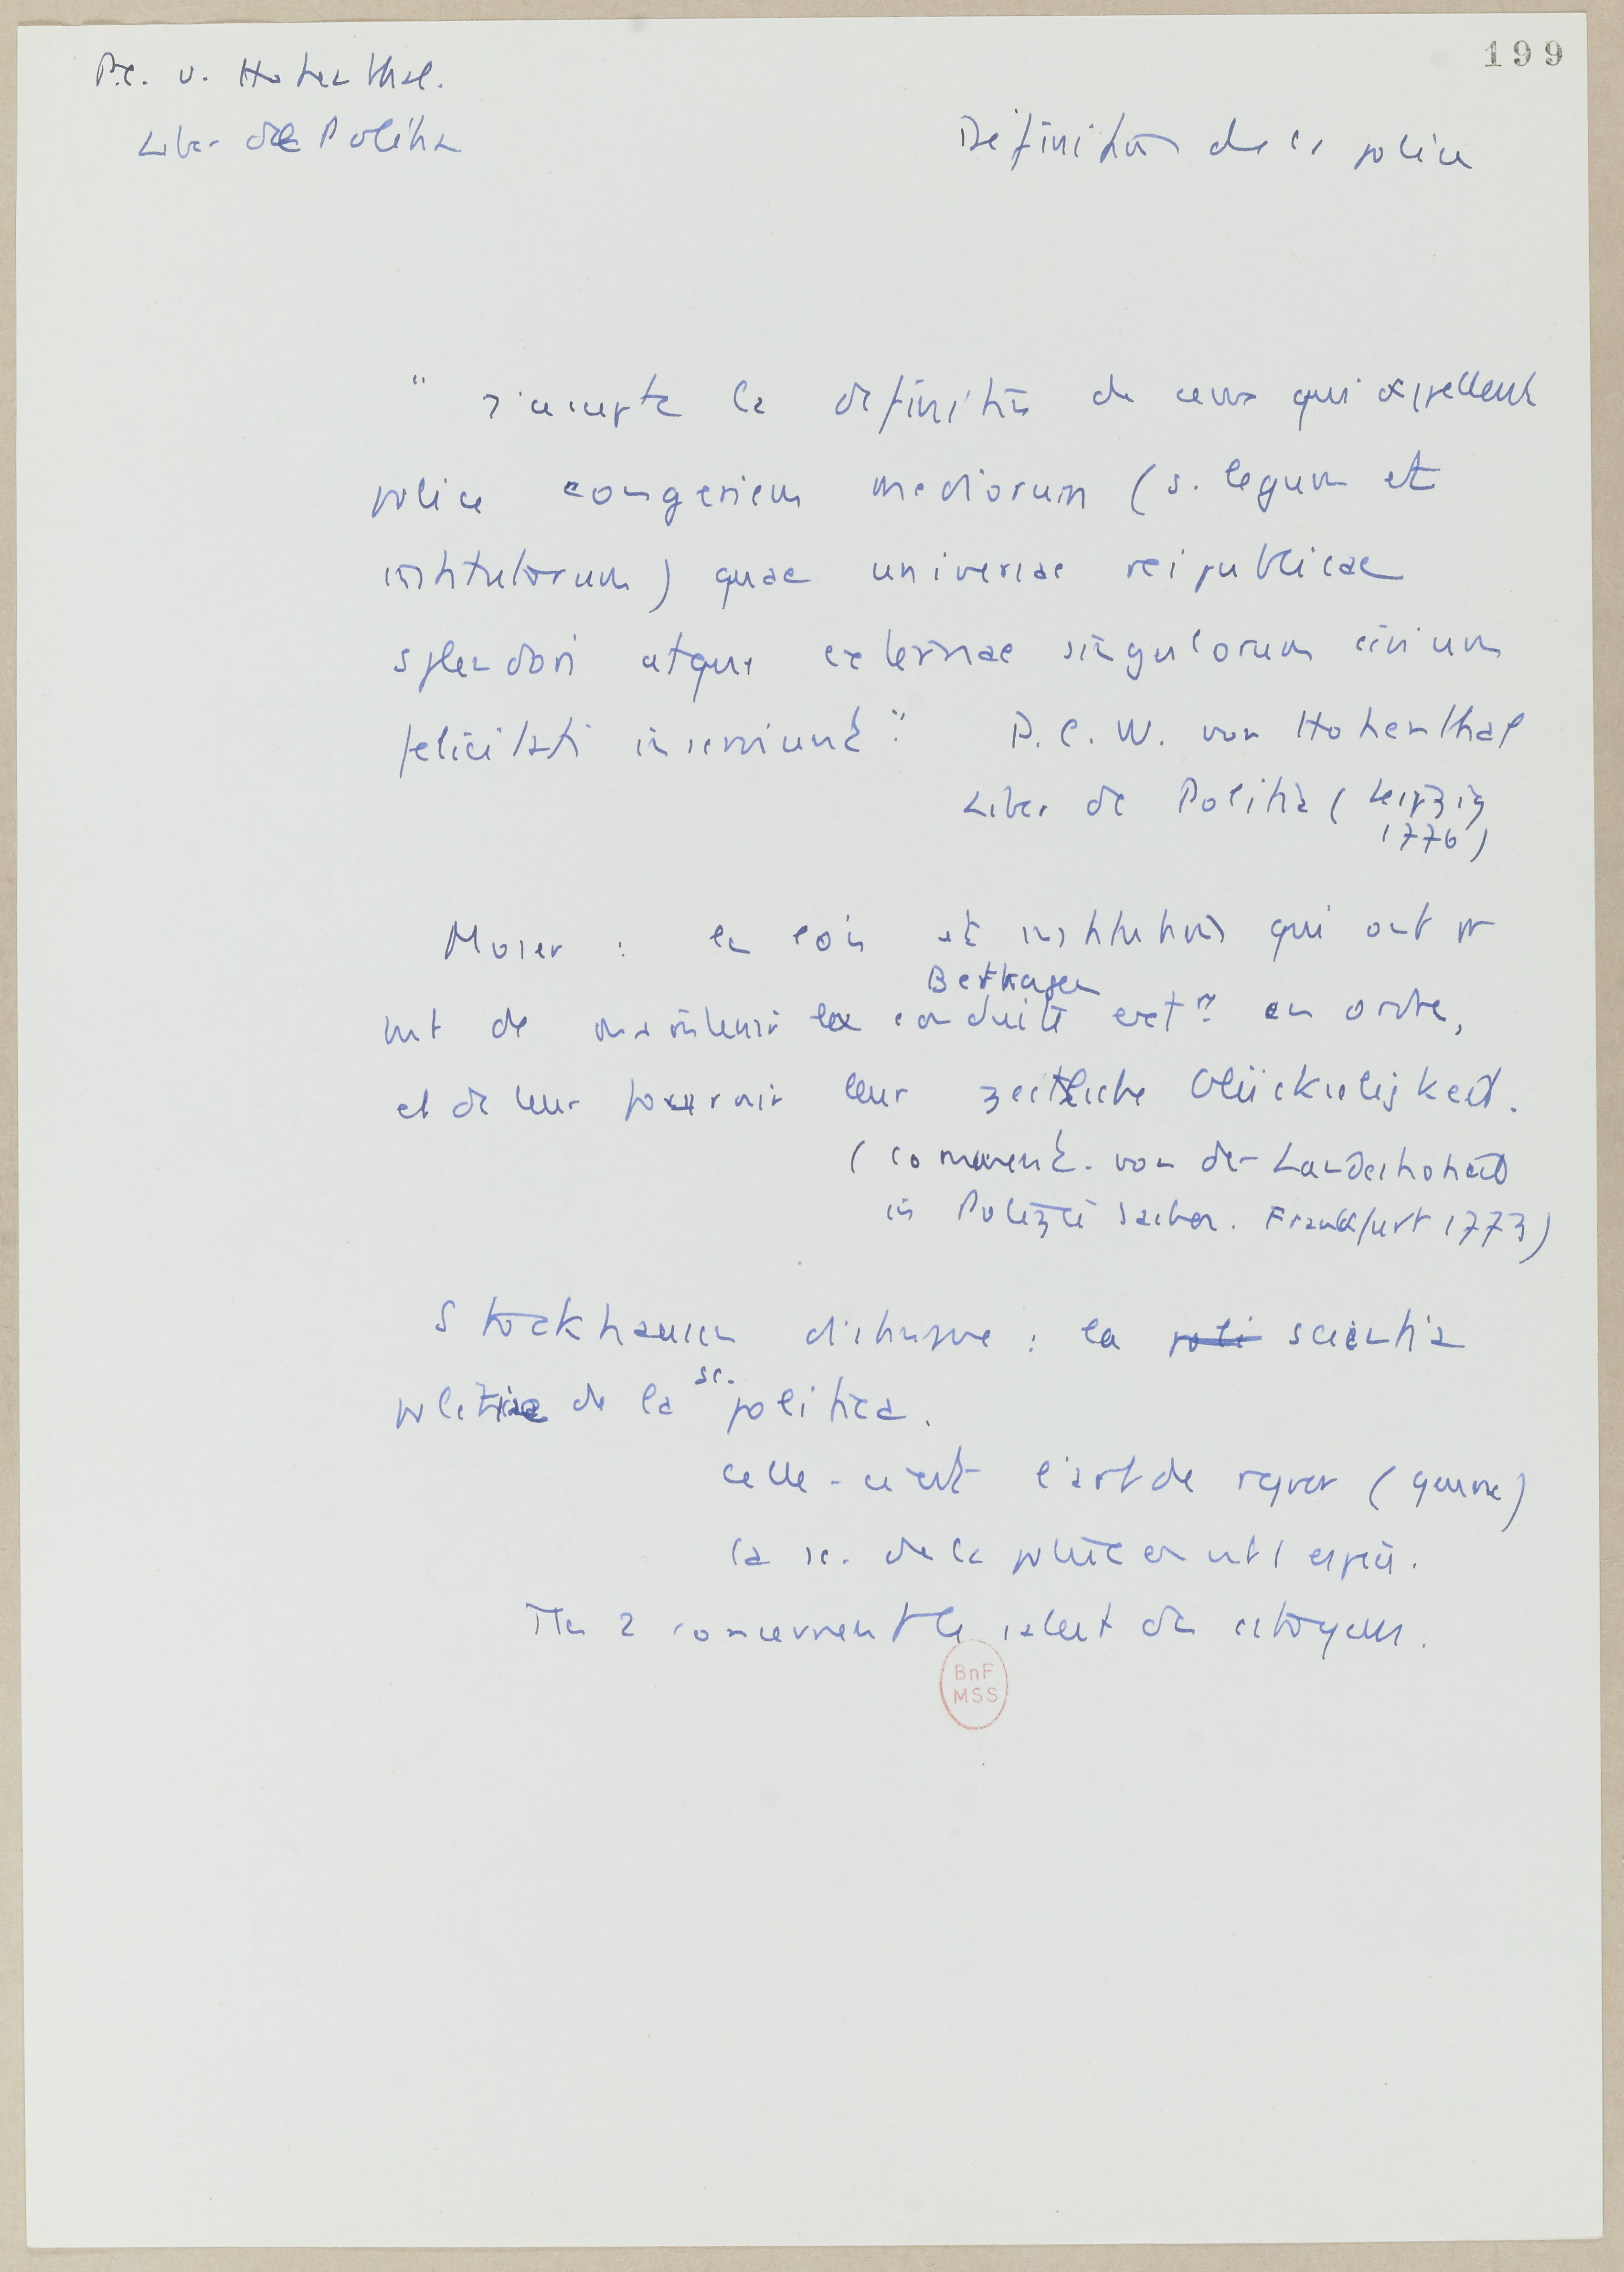 199
P.C. v. Hohenthal.
Liber de Politia
Définition de la police
" J'accepte la définition de ceux qui appellent
police congeriem mediorum (s. legum et
institutorum) quae universae reipublicae
splendori atque externae singulorum civium
felicitati inserviunt". P.C.W. von Hohenthal
Liber de Politia (Leipzig
1776)
Moser : les lois et institutions qui ont pr
but de maintenir la conduite ext? en ordre,
Betragen
et de leur fournir leur zeitliche Glückseligkeit.
(comment. von der Landeshoheit
in Polizei Sachen. Frankfurt 1773)
Stockhausen distingue : la poli scientia
politiae de la sc. politica.
celle-ci est l'art de régner (genre)
la sc. de la police en est 1 espèce.
Les 2 concernent le salut des citoyens.
BnF
MSS